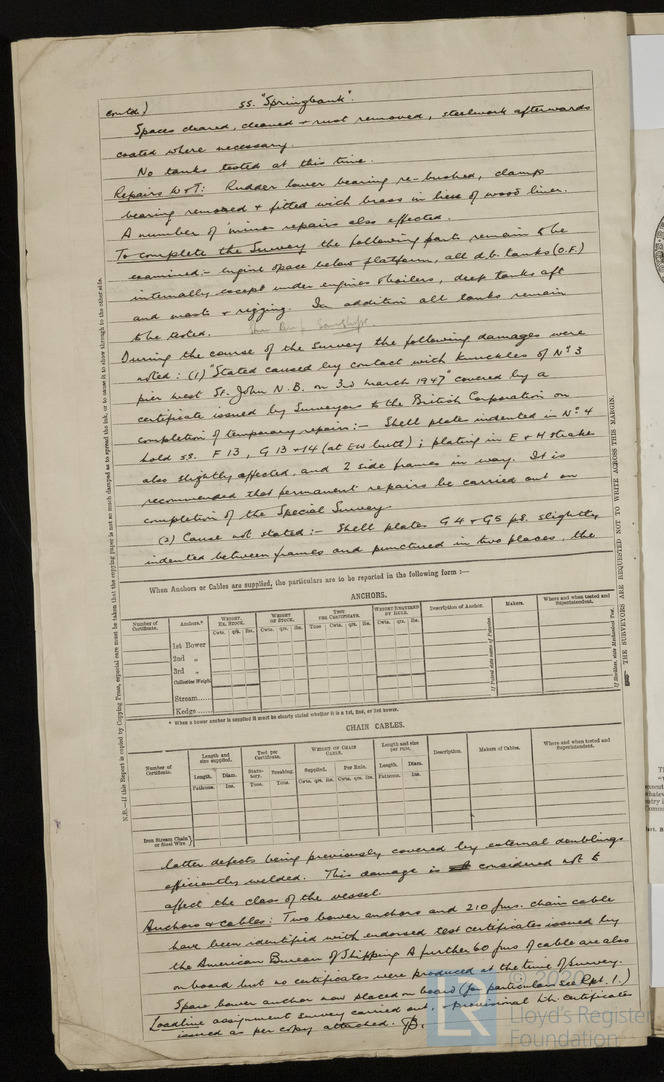 contd.) SS. "Springbank".
Spaces cleared, cleaned + rust removed, steelwork afterwards
coated where necessary.
No tanks tested at this time.
Repairs W+T: Rudder lower bearing re-bushed, clamp
bearing removed + fitted with brass in lieu of wood liner.
A number of minor repairs also effected.
To complete the Survey the following parts remain to be
examined:- engine space below platform, all d.b. tanks (O.F.)
internally except under engines + boilers, deep tanks aft
and masts + rigging. In addition all tanks remain
to be tested.
During the course of the Survey the following damages were
noted: (1) "Stated caused by contact with knuckles of No 3
pier west St. John N.B. on 3rd March 1947" covered by a
certificate issued by Surveyors to the British Corporation on
completion of temporary repairs:- Shell plates indented in No 4
hold ss. F 13, G 13 + 14 (at EW butt); plating in E + H strakes
also slightly affected, and 2 side frames in way. It is
recommended that permanent repairs be carried out on
completion of the Special Survey.
(2) Cause not stated:- Shell plates G4 + G5 ps. slightly
indented between frames and punctured in two places, the
When Anchors or Cables are supplied, the particulars are to be reported in the following form:—
ANCHORS.
Number of Certificate. Anchors.* Weight, Ex. Stock. Weight of Stock. Test per Certificate. Weight Required by Rule. Description of Anchor. Makers. Where and when tested and Superintendent.
Cwts. qrs. lbs. Cwts. qrs. lbs. Tons Cwts. qrs. lbs. Cwts. qrs. lbs.
1st Bower
2nd „
3rd „
Collective Weight
Stream......
Kedge......
* When a bower anchor is supplied it must be clearly stated whether it is a 1st, 2nd, or 3rd bower.
CHAIN CABLES.
Number of Certificate. Length and size supplied. Test per Certificate. Weight of Chain Cable. Length and size per rule. Description. Makers of Cables. Where and when tested and Superintendent.
Length. Diam. Statutory. Breaking. Supplied. Per Rule. Length. Diam.
Fathoms. Ins. Tons. Tons. Cwts. qrs. lbs. Cwts. qrs. lbs. Fathoms. Ins.
Iron Stream Chain or Steel Wire
latter defects being previously covered by external doublings
efficiently welded. This damage is considered not to
affect the class of the vessel.
Anchors + cables: Two bower anchors and 210 fms. chain cable
have been identified with endorsed test certificates issued by
the American Bureau of Shipping. A further 60 fms of cable are also
on board but no certificates were produced at the time of survey.
Spare bower anchor now placed on board (for particulars see Rpt. 1.)
Loadline assignment survey carried out, + provisional L.L. certificates
issued as per copy attached.
N.B.—If this Report is copied by Copying Press, especial care must be taken that the copying paper is not so much damped as to spread the ink, or to cause it to show through to the other side.
THE SURVEYORS ARE REQUESTED NOT TO WRITE ACROSS THIS MARGIN.
© 2020
LR
Lloyd's Register
Foundation